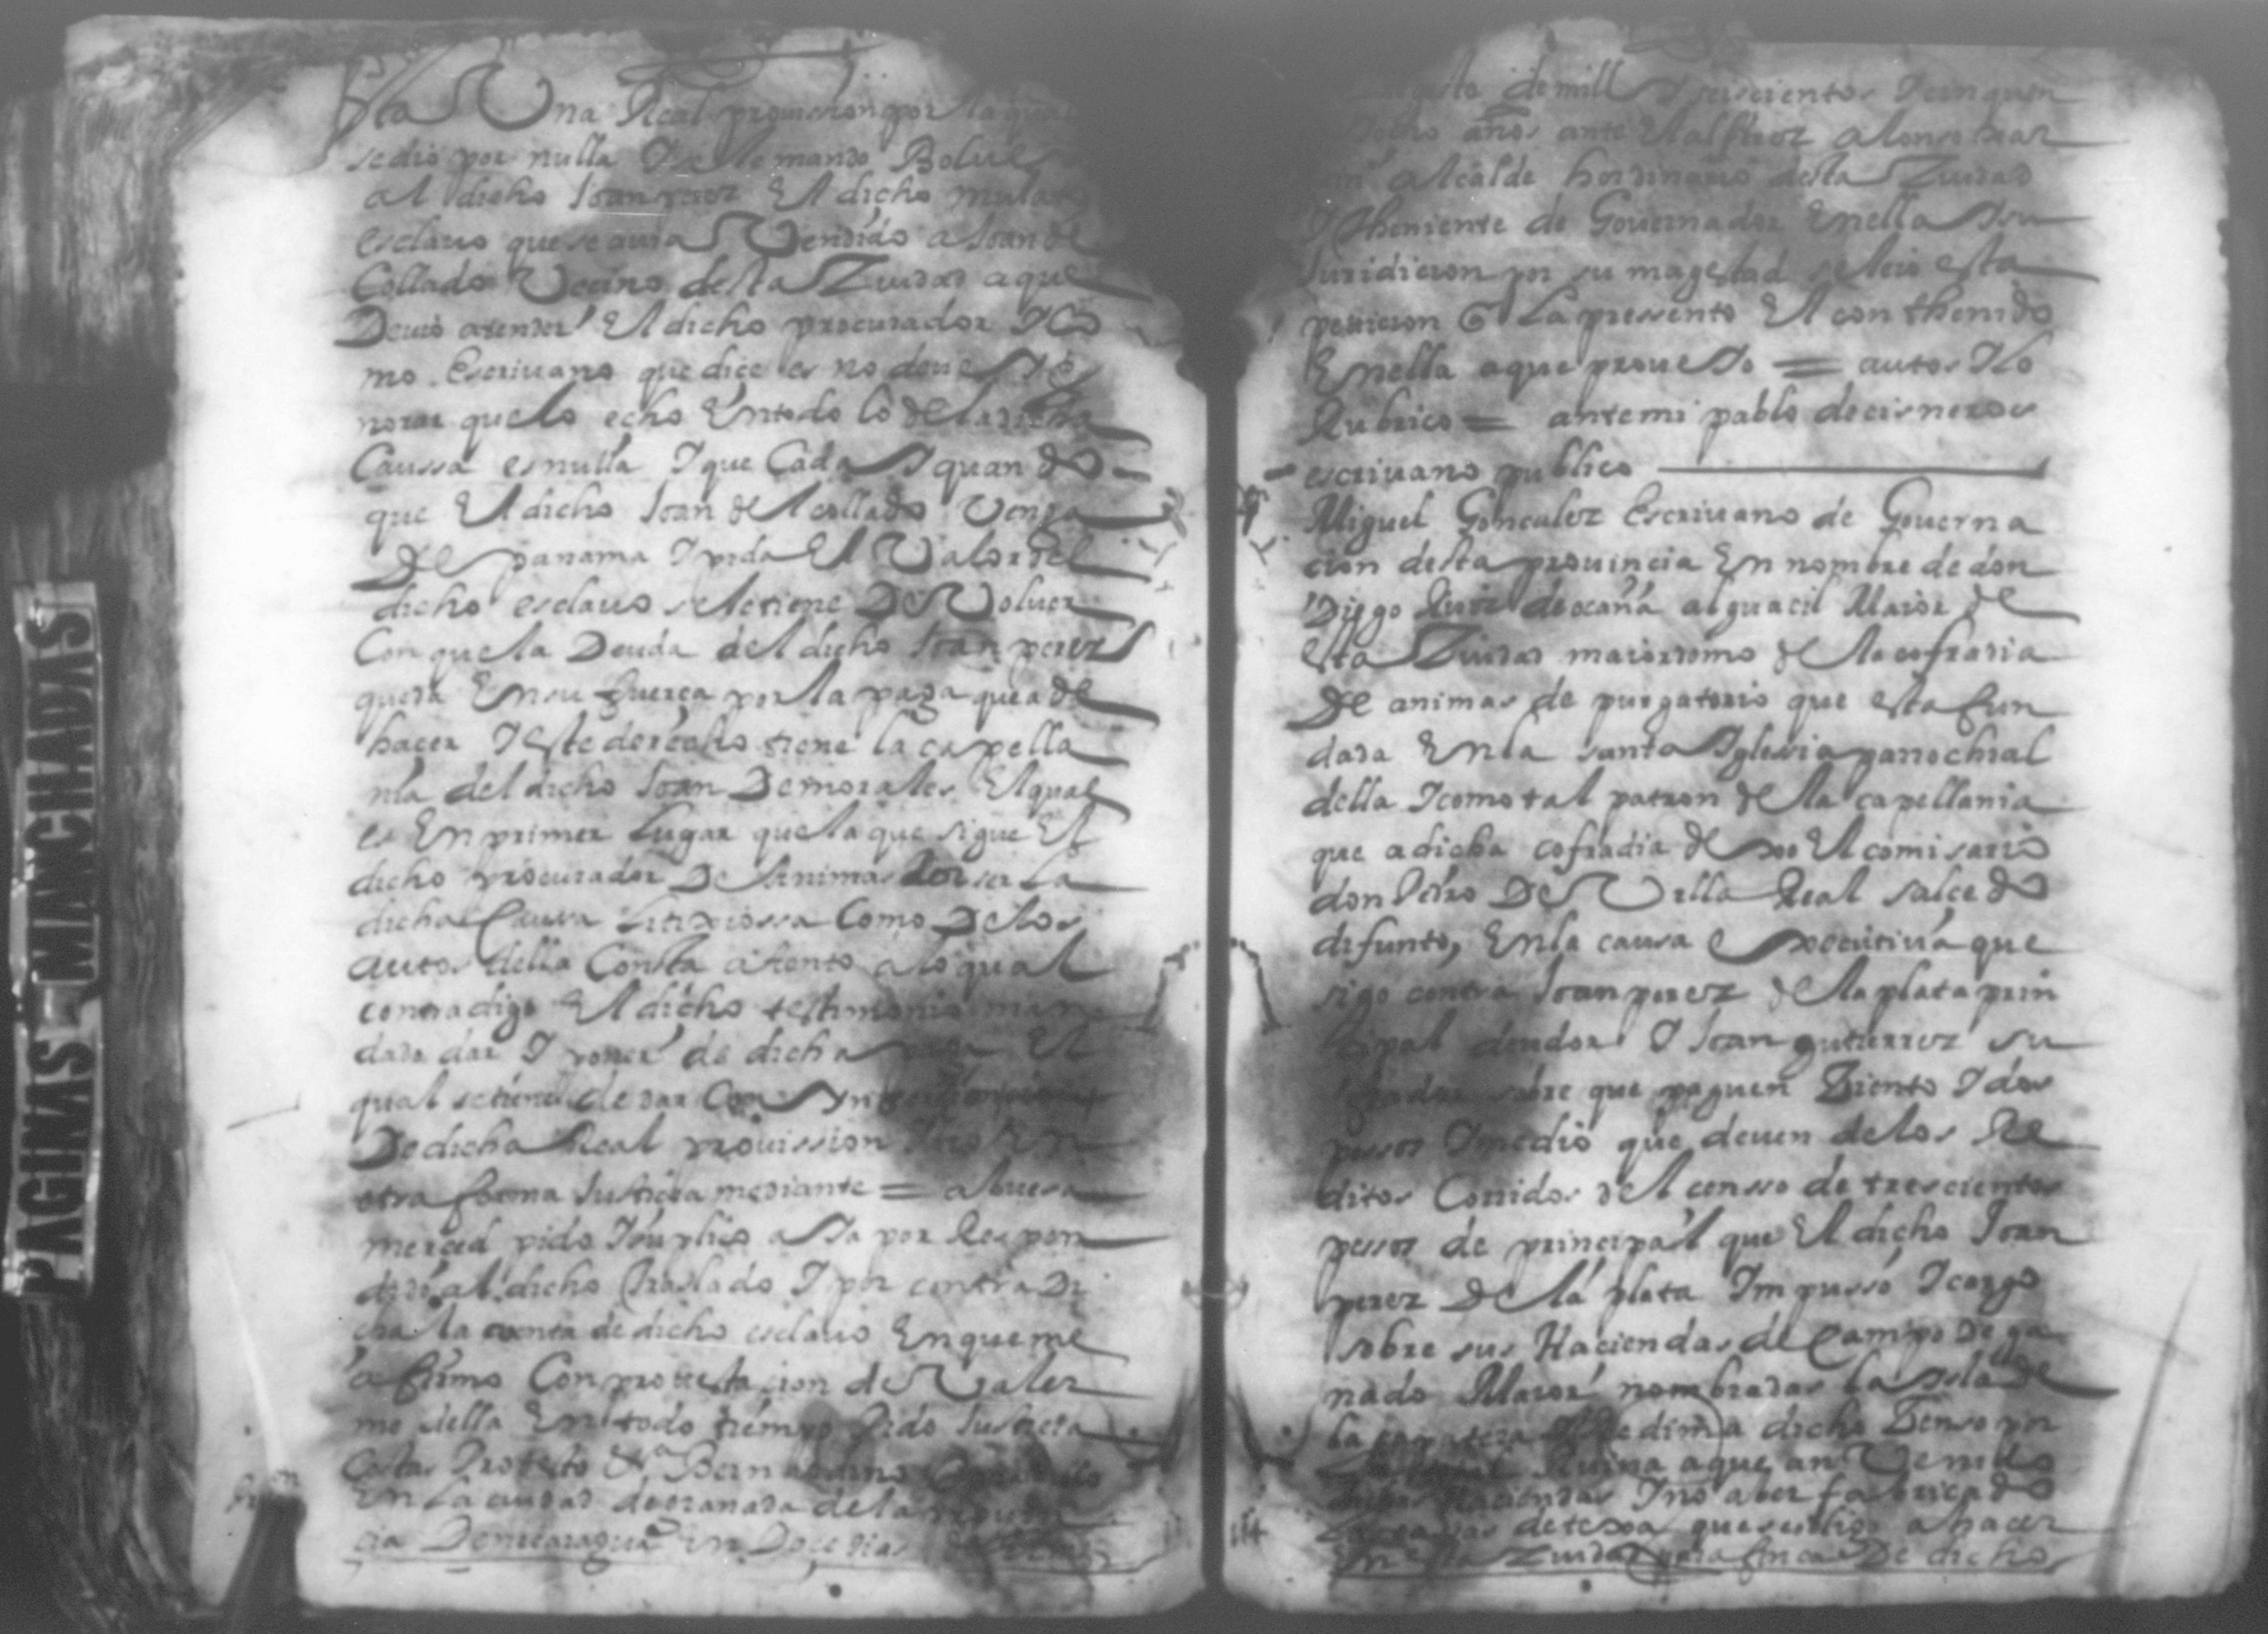 PAGINAS MANCHADAS
sta Una Real provission por la qual
se dio por nulla I se le mando Bolver
al dicho Joan perez El dicho mulato
esclavo que se avia Vendido a Joan del
Collado Vecino desta Ziudad a que
Devio atender El dicho procurador I co
mo Escrivano que dice es no deve Yg
norar que lo echo En todo lo de la dicha
Caussa es nulla I que Cada I quan do
que El dicho Joan del collado Venga
De panama I pida El Valor del
dicho esclavo se le tiene De Volver
Con que la Deuda del dicho Joan perez
queda En su fuerça por la paga que a de
hacer I este derecho tiene la capella
nia del dicho Joan De morales El qual
es En primer Lugar que la que sigue El
dicho procurador De Animas por ser La
dicha Caussa Litixiossa Como De los
autos della Consta atento a lo qual
contradigo El dicho testimonio man
dado dar I poner de dicha paga El
qual se tiene de dar Con
De dicha Real provission I no En
otra forma Justicia mediante = a buesa
merced pido I suplico assi por Respon
dido al dicho traslado I por contra Di
cha la venta de dicho esclavo En que me
afirmo Con protestacion de Valer
me della En todo tiempo Pido Justicia
Costas Protesto &ª Bernardino
En La ciudad de granada de la provin
cia De nicaragua En Doce dias
agosto de mill I seiscientos I cinquen
ocho años ante El alferez alonso
alcalde hordinario desta Ziudad
I Theniente de Governador En ella I su
Juridicion por su magestad se leio esta
peticion I La pressento El conthenido
En ella a que proveIo = autos I lo
Rubrico = ante mi pablo de cisneros
escrivano publico
Miguel Gonçalez Escrivano de Governa
cion desta provincia En nombre de don
Diego Ruiz de ocaña alguacil Maior de
esta Ziudad maiordomo de la cofradia
De animas de purgatorio que esta fun
dada En la santa Iglesia parrochial
della I como tal patron de la capellania
que a dicha cofradia dexo El comisario
don Pedro De Villa Real salcedo
difunto, En la causa Executiva que
sigo contra Joan perez de la plata prin
cipal deudor I Joan gutierrez su
fiador sobre que paguen Ziento I dos
pessos I medio que deven de los Re
ditos Corridos del censso de trescientos
pessos de principal que El dicho Joan
perez De la plata Impusso I cargo
sobre sus Haciendas de Campo De ga
nado Maior nombradas la Isla de
la I Redima dicho Zenso por
Ruina a que an Venido
dichas Haciendas I no aber fabricado
las casas de texa que se obligo a hacer
En esta Ziudad para finca De dicho